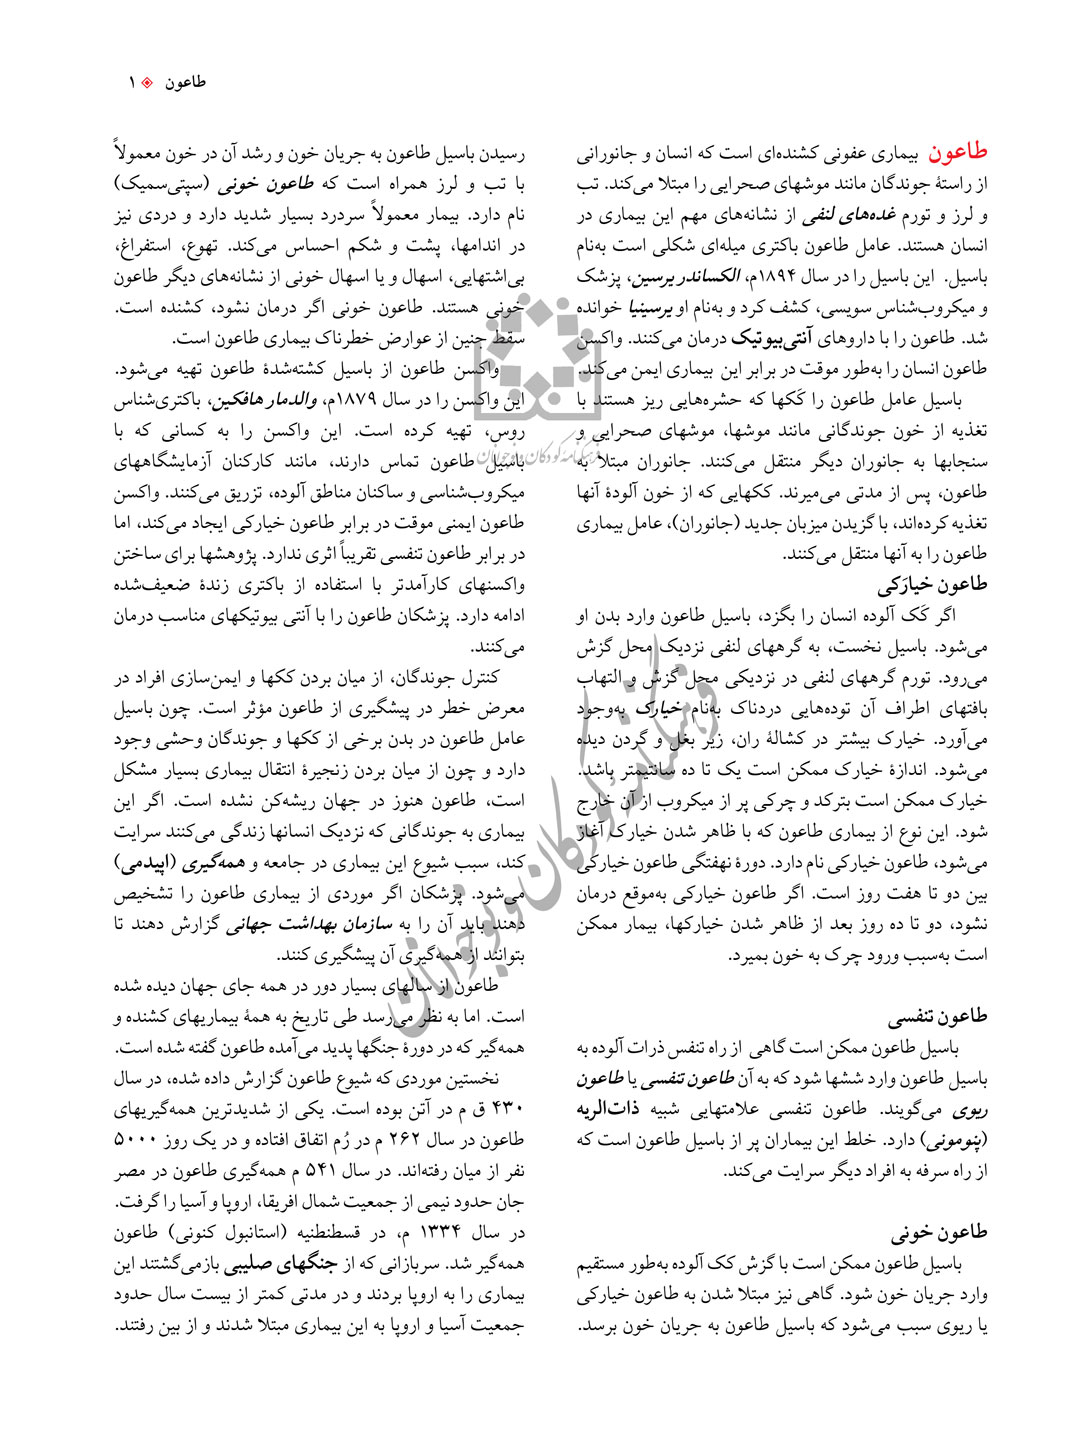 طاعون ۱
طاعون بیماری عفونی کشنده‌ای است که انسان و جانورانی
از راستهٔ جوندگان مانند موشهای صحرایی را مبتلا می‌کند. تب
و لرز و تورم غده‌های لنفی از نشانه‌های مهم این بیماری در
انسان هستند. عامل طاعون باکتری میله‌ای شکلی است به‌نام
باسیل. این باسیل را در سال ۱۸۹۴م، الکساندر یرسین، پزشک
و میکروب‌شناس سویسی، کشف کرد و به‌نام او یرسینیا خوانده
شد. طاعون را با داروهای آنتی‌بیوتیک درمان می‌کنند. واکسن
طاعون انسان را به‌طور موقت در برابر این بیماری ایمن می‌کند.
باسیل عامل طاعون را کَکها که حشره‌هایی ریز هستند با
تغذیه از خون جوندگانی مانند موشها، موشهای صحرایی و
سنجابها به جانوران دیگر منتقل می‌کنند. جانوران مبتلا به
طاعون، پس از مدتی می‌میرند. ککهایی که از خون آلودهٔ آنها
تغذیه کرده‌اند، با گزیدن میزبان جدید (جانوران)، عامل بیماری
طاعون را به آنها منتقل می‌کنند.
طاعون خیارَکی
اگر کَک آلوده انسان را بگزد، باسیل طاعون وارد بدن او
می‌شود. باسیل نخست، به گرههای لنفی نزدیک محل گزش
می‌رود. تورم گرههای لنفی در نزدیکی محل گزش و التهاب
بافتهای اطراف آن توده‌هایی دردناک به‌نام خیارک به‌وجود
می‌آورد. خیارک بیشتر در کشالهٔ ران، زیر بغل و گردن دیده
می‌شود. اندازهٔ خیارک ممکن است یک تا ده سانتیمتر باشد.
خیارک ممکن است بترکد و چرکی پر از میکروب از آن خارج
شود. این نوع از بیماری طاعون که با ظاهر شدن خیارک آغاز
می‌شود، طاعون خیارکی نام دارد. دورهٔ نهفتگی طاعون خیارکی
بین دو تا هفت روز است. اگر طاعون خیارکی به‌موقع درمان
نشود، دو تا ده روز بعد از ظاهر شدن خیارکها، بیمار ممکن
است به‌سبب ورود چرک به خون بمیرد.
طاعون تنفسی
باسیل طاعون ممکن است گاهی از راه تنفس ذرات آلوده به
باسیل طاعون وارد ششها شود که به آن طاعون تنفسی یا طاعون
ریوی می‌گویند. طاعون تنفسی علامتهایی شبیه ذات‌الریه
(پنومونی) دارد. خلط این بیماران پر از باسیل طاعون است که
از راه سرفه به افراد دیگر سرایت می‌کند.
طاعون خونی
باسیل طاعون ممکن است با گزش کک آلوده به‌طور مستقیم
وارد جریان خون شود. گاهی نیز مبتلا شدن به طاعون خیارکی
یا ریوی سبب می‌شود که باسیل طاعون به جریان خون برسد.
رسیدن باسیل طاعون به جریان خون و رشد آن در خون معمولاً
با تب و لرز همراه است که طاعون خونی (سپتی‌سمیک)
نام دارد. بیمار معمولاً سردرد بسیار شدید دارد و دردی نیز
در اندامها، پشت و شکم احساس می‌کند. تهوع، استفراغ،
بی‌اشتهایی، اسهال و یا اسهال خونی از نشانه‌های دیگر طاعون
خونی هستند. طاعون خونی اگر درمان نشود، کشنده است.
سقط جنین از عوارض خطرناک بیماری طاعون است.
واکسن طاعون از باسیل کشته‌شدهٔ طاعون تهیه می‌شود.
این واکسن را در سال ۱۸۷۹م، والدمار هافکین، باکتری‌شناس
روس، تهیه کرده است. این واکسن را به کسانی که با
باسیل طاعون تماس دارند، مانند کارکنان آزمایشگاههای
میکروب‌شناسی و ساکنان مناطق آلوده، تزریق می‌کنند. واکسن
طاعون ایمنی موقت در برابر طاعون خیارکی ایجاد می‌کند، اما
در برابر طاعون تنفسی تقریباً اثری ندارد. پژوهشها برای ساختن
واکسنهای کارآمدتر با استفاده از باکتری زندهٔ ضعیف‌شده
ادامه دارد. پزشکان طاعون را با آنتی بیوتیکهای مناسب درمان
می‌کنند.
کنترل جوندگان، از میان بردن ککها و ایمن‌سازی افراد در
معرض خطر در پیشگیری از طاعون مؤثر است. چون باسیل
عامل طاعون در بدن برخی از ککها و جوندگان وحشی وجود
دارد و چون از میان بردن زنجیرهٔ انتقال بیماری بسیار مشکل
است، طاعون هنوز در جهان ریشه‌کن نشده است. اگر این
بیماری به جوندگانی که نزدیک انسانها زندگی می‌کنند سرایت
کند، سبب شیوع این بیماری در جامعه و همه‌گیری (اپیدمی)
می‌شود. پزشکان اگر موردی از بیماری طاعون را تشخیص
دهند باید آن را به سازمان بهداشت جهانی گزارش دهند تا
بتوانند از همه‌گیری آن پیشگیری کنند.
طاعون از سالهای بسیار دور در همه جای جهان دیده شده
است. اما به نظر می‌رسد طی تاریخ به همهٔ بیماریهای کشنده و
همه‌گیر که در دورهٔ جنگها پدید می‌آمده طاعون گفته شده است.
نخستین موردی که شیوع طاعون گزارش داده شده، در سال
۴۳۰ ق م در آتن بوده است. یکی از شدیدترین همه‌گیریهای
طاعون در سال ۲۶۲ م در رُم اتفاق افتاده و در یک روز ۵۰۰۰
نفر از میان رفته‌اند. در سال ۵۴۱ م همه‌گیری طاعون در مصر
جان حدود نیمی از جمعیت شمال افریقا، اروپا و آسیا را گرفت.
در سال ۱۳۳۴ م، در قسطنطنیه (استانبول کنونی) طاعون
همه‌گیر شد. سربازانی که از جنگهای صلیبی بازمی‌گشتند این
بیماری را به اروپا بردند و در مدتی کمتر از بیست سال حدود
جمعیت آسیا و اروپا به این بیماری مبتلا شدند و از بین رفتند.
فرهنگنامه کودکان و نوجوانان
فرهنگنامه کودکان و نوجوانان